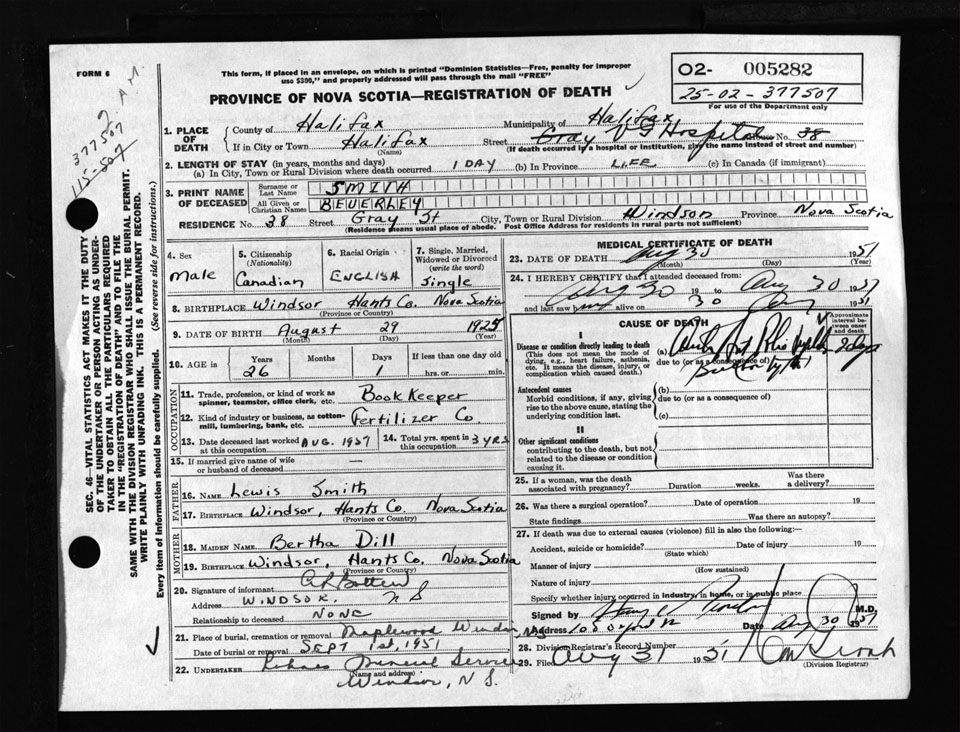 FORM 6
This form, if placed in an envelope, on which is printed "Dominion Statistics—Free, penalty for improper
use $300," and properly addressed will pass through the mail "FREE"
PROVINCE OF NOVA SCOTIA—REGISTRATION OF DEATH
O2- 005282
25-02-377507
For use of the Department only
A.M.
377507
115-507
1. PLACE OF DEATH
County of Halifax Municipality of Halifax
If in City or Town Halifax Street Gray V G Hospital House No. 38
(Name) (If death occurred in a hospital or institution, give the name instead of street and number)
2. LENGTH OF STAY (in years, months and days)
(a) In City, Town or Rural Division where death occurred 1 DAY (b) In Province LIFE (c) In Canada (if immigrant)
3. PRINT NAME OF DECEASED
Surname or Last Name SMITH
All Given or Christian Names BEVERLEY
RESIDENCE No. 38 Street Gray St City, Town or Rural Division Windsor Province Nova Scotia
(Residence means usual place of abode. Post Office Address for residents in rural parts not sufficient)
4. Sex
Male
5. Citizenship
(Nationality)
Canadian
6. Racial Origin
ENGLISH
7. Single, Married,
Widowed or Divorced
(write the word)
Single
8. BIRTHPLACE Windsor Hants Co. Nova Scotia
(Province or Country)
9. DATE OF BIRTH August 29 1925
(Month) (Day) (Year)
10. AGE in Years Months Days If less than one day old
26 1 hrs. or min.
OCCUPATION
11. Trade, profession, or kind of work as
spinner, teamster, office clerk, etc. Book Keeper
12. Kind of industry or business, as cotton-
mill, lumbering, bank, etc. Fertilizer Co.
13. Date deceased last worked
at this occupation AUG. 1951
14. Total yrs. spent in
this occupation 3 YRS
15. If married give name of wife
or husband of deceased —
FATHER
16. NAME Lewis Smith
17. BIRTHPLACE Windsor, Hants Co. Nova Scotia
(Province or Country)
MOTHER
18. MAIDEN NAME Bertha Dill
19. BIRTHPLACE Windsor, Hants Co. Nova Scotia
(Province or Country)
20. Signature of informant
Address WINDSOR. N S
Relationship to deceased NONE
21. Place of burial, cremation or removal Maplewood Windsor, NS
Date of burial or removal SEPT 1st, 1951
22. UNDERTAKER Funeral Service
(Name and address)
Windsor, N S.
MEDICAL CERTIFICATE OF DEATH
23. DATE OF DEATH Aug 30 1951
(Month) (Day) (Year)
24. I HEREBY CERTIFY that I attended deceased from:
Aug 30 19 to Aug 30 1951
and last saw him alive on 30 Aug 1951
CAUSE OF DEATH
Approximate interval between onset and death
I
Disease or condition directly leading to death
(This does not mean the mode of
dying, e.g., heart failure, asthenia,
etc. It means the disease, injury, or
complication which caused death.)
(a)
due to (or as a consequence of)
Antecedent causes
Morbid conditions, if any, giving
rise to the above cause, stating the
underlying condition last.
(b)
due to (or as a consequence of)
(c)
II
Other significant conditions
contributing to the death, but not
related to the disease or condition
causing it.
25. If a woman, was the death
associated with pregnancy? Duration weeks. Was there
a delivery?
26. Was there a surgical operation? Date of operation 19
State findings Was there an autopsy?
27. If death was due to external causes (violence) fill in also the following:—
Accident, suicide or homicide? Date of injury 19
(State which)
Manner of injury
(How sustained)
Nature of injury
Specify whether injury occurred in industry, in home, or in public place
Signed by M.D.
Address Date Aug 30 1951
28. Division Registrar's Record Number
29. Filed Aug 31 1951
(Division Registrar)
SEC. 46—VITAL STATISTICS ACT MAKES IT THE DUTY
OF THE UNDERTAKER OR PERSON ACTING AS UNDER-
TAKER TO OBTAIN ALL THE PARTICULARS REQUIRED
IN THE "REGISTRATION OF DEATH" AND TO FILE THE
SAME WITH THE DIVISION REGISTRAR WHO SHALL ISSUE THE BURIAL PERMIT.
WRITE PLAINLY WITH UNFADING INK. THIS IS A PERMANENT RECORD.
Every item of information should be carefully supplied. (See reverse side for instructions.)